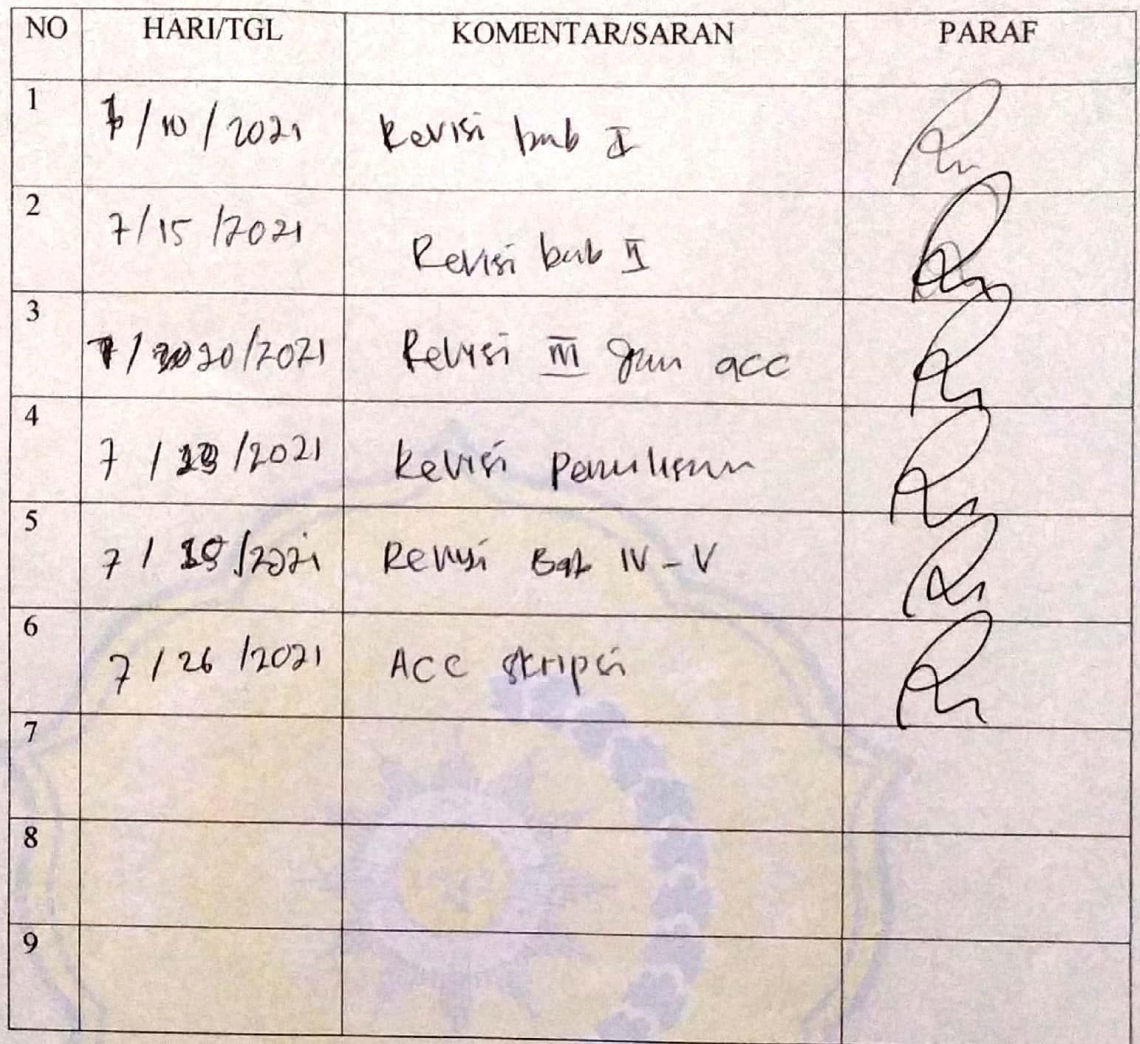 NO HARI/TGL KOMENTAR/SARAN PARAF
1 /10/2021 Revisi bab I
2 7/15/2021 Revisi bab II
3 7/20/2021 Revisi III dan acc
4 7/ /2021 Revisi Penulisan
5 7/ /2021 Revisi Bab IV-V
6 7/26/2021 Acc skripsi
7
8
9